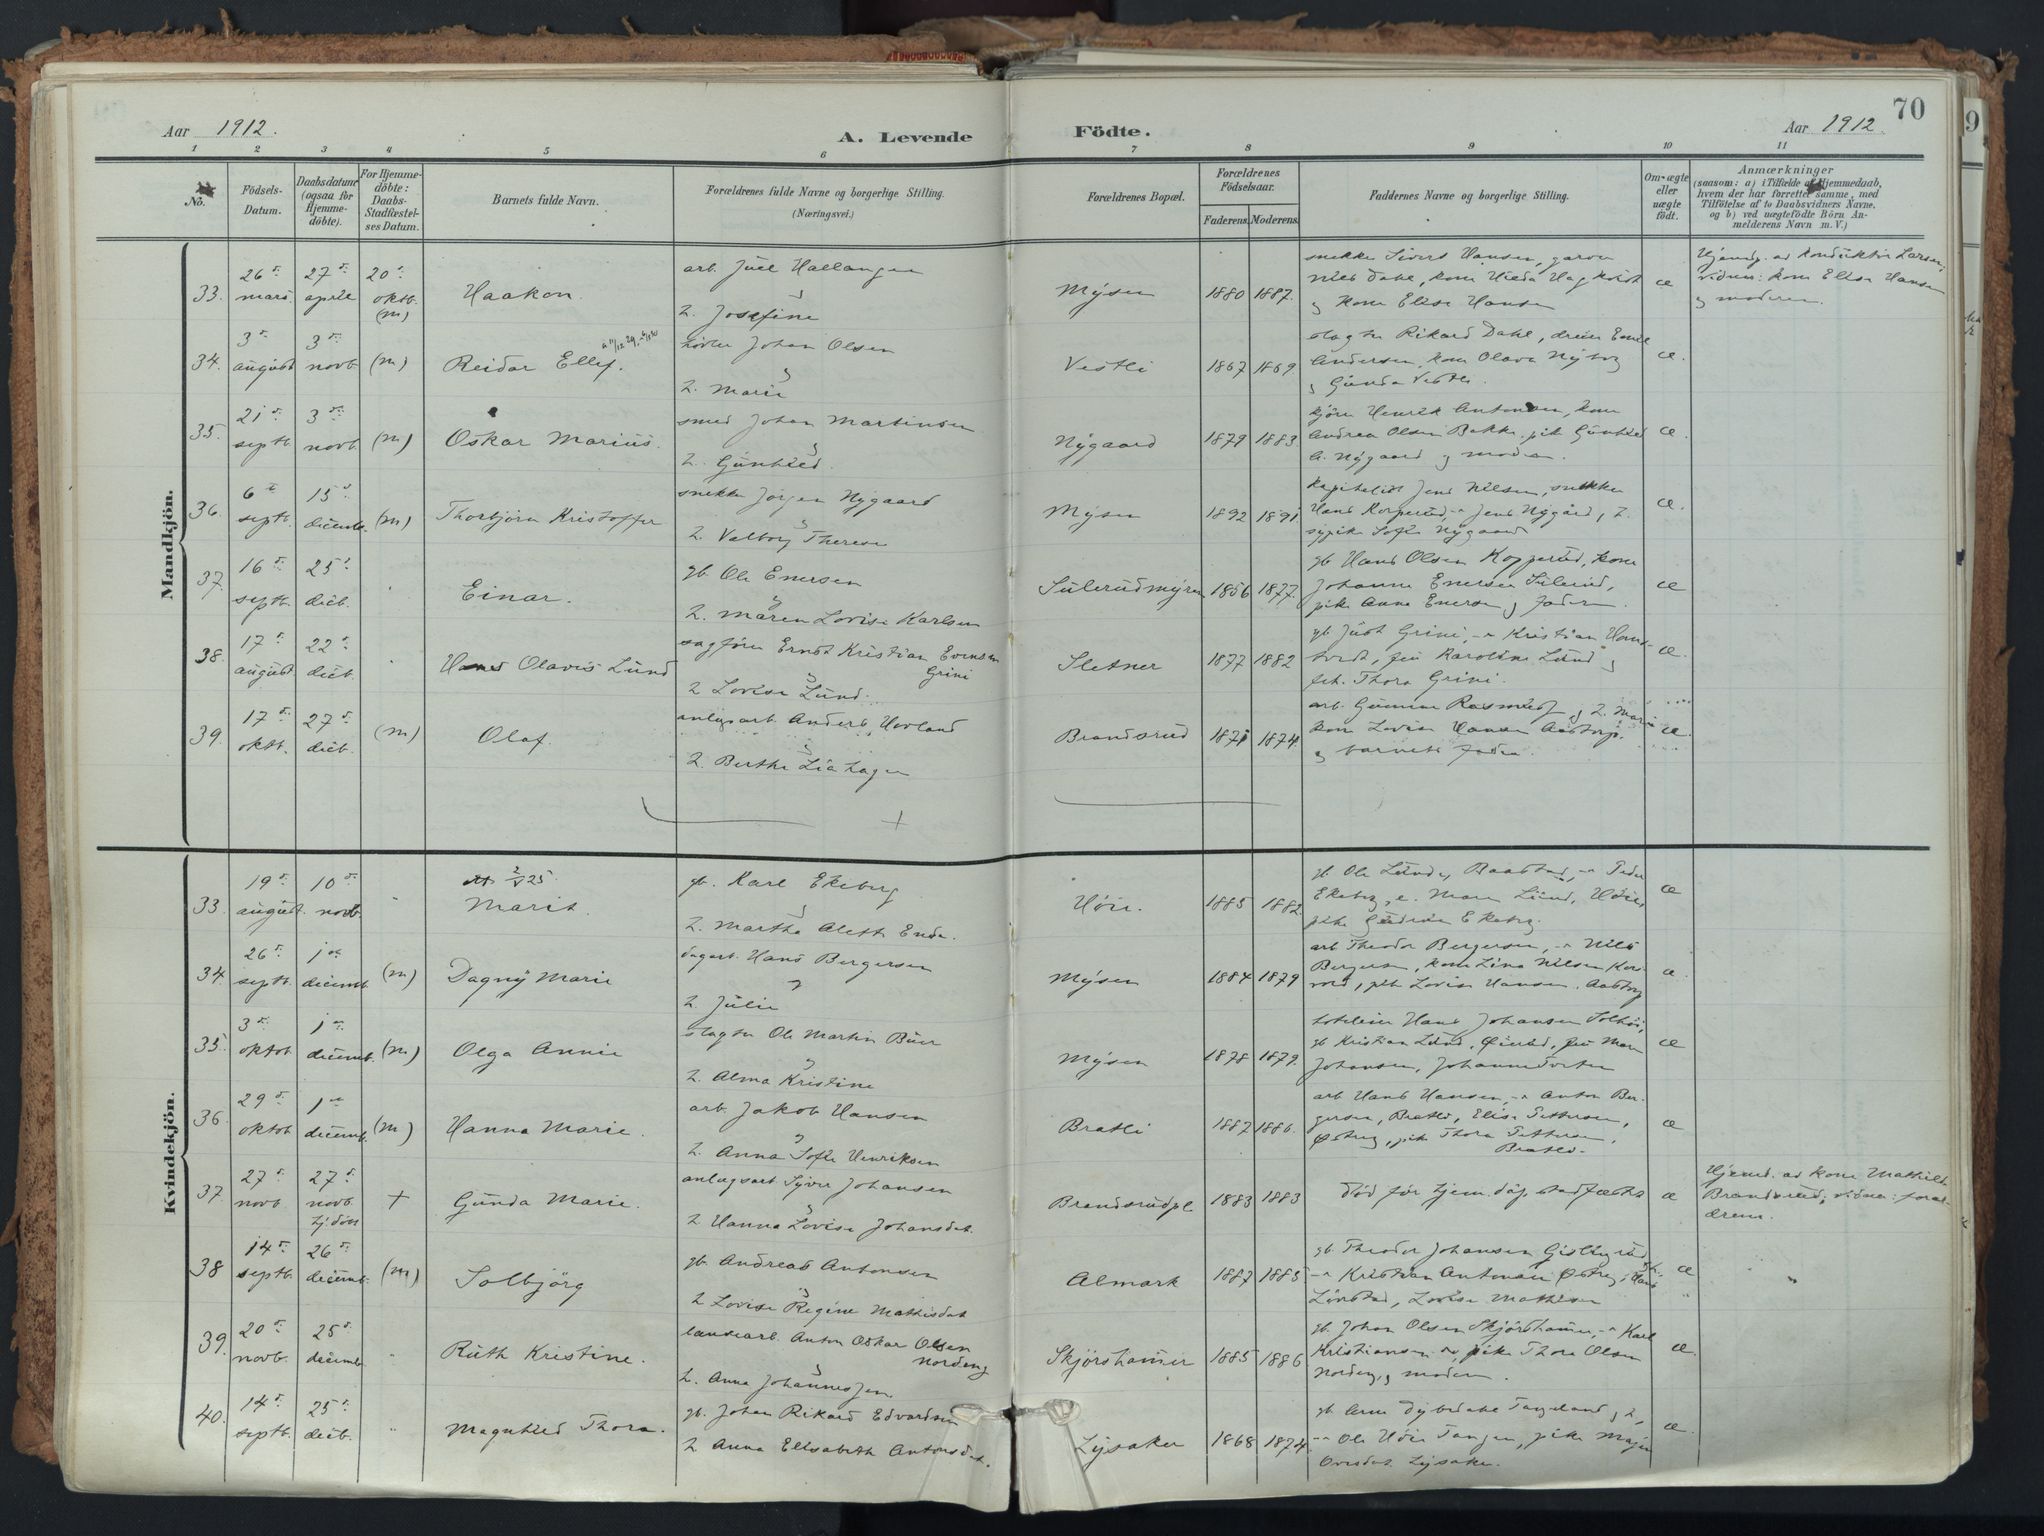 70
Aar 1912.
A. Levende Födte.
Aar 1912.
1 2 3 4 5 6 7 8 9 10 11
No.
Födsels-Datum.
Daabsdatum (ogsaa for Hjemme-döbte).
For Hjemme-döbte: Daabs-Stadfæstel-ses Datum.
Barnets fulde Navn.
Forældrenes fulde Navne og borgerlige Stilling.
(Næringsvei.)
Forældrenes Bopæl.
Forældrenes Födselsaar.
Faderens. Moderens.
Faddernes Navne og borgerlige Stilling.
Om ægte eller uægte födt.
Anmærkninger
(saasom: a) i Tilfælde af Hjemmedaab,
hvem der har forrettet samme, med
Tilföielse af to Daabsvidners Navne,
og b) ved uægtefödte Börn An-
melderens Navn m. V.)
Mandkjön.
33. 26 mars 27 april 20 oktb. (m) Haakon. arb. Juel Hallangen & 2. Josefine Mysen 1880 1887. snekker Sivert Hansen, garver
Nils Dahl, kone Hilda Hagkvist
og kone Elise Hansen æ
Hjemmed. av konduktör Larsen,
vidner: kone Elise Hansen
og moderen.
34. 3 august 3 novb. (m) Reidar Ellef. Johan Olsen & 2. Marie Vestli 1867 1869 slagter Rikard Dahl, dreier Emil
Andersen, kone Olava Nyborg
og Gunda Vestli. æ.
35. 21 septb. 3 novb. (m) Oskar Marius. smed Johan Martinsen & 2. Gunhild. Nygaard 1879 1883. kjörer Henrik Antonsen, kone
Andrea Olsen Bakke, pike Gunhild
A. Nygaard og moderen. æ.
36. 6 septb. 15 decemb. (m) Thorbjörn Kristoffer snekker Jörgen Nygaard & 2. Valborg Therese Mysen 1892 1891. Jens Nilsen, snekker
Hans Korperud, " Jens Nygård, 2.
sypike Sofie Nygaard æ.
37. 16 septb. 25 decb. " Einar. gb. Ole Enersen & 2. Maren Lovise Karlsen Sulerudmyren 1856 1877. gb Hans Olsen Kopperud, kone
Johanne Enersen Sulerud,
pike Anna Enersen og faderen. æ
38. 17 august. 22 decb. " Hans Olavis Lund sagförer Ernst Kristian Evensen Grini & 2 Lovise Lund. Sletner 1877 1882 gb. Just Grini, " Kristian
fru Karoline Lund og
frk. Thora Grini. æ.
39. 17 oktb. 27 decb. (m) Olaf. anlægsarb. Anders Hovland & 2. Berthe Lia Hagen Brandsrud 1871 1874. arb. Gunnar og 2. Marie
kone Lovise Hansen Aastorp.
og barnets fader. æ.
Kvindekjön.
33. 19 august. 10 novb. " Marit. gb. Karl Ekeberg & 2. Martha Aletta Höie. 1885 1882. gb Ole Lunde, Baastad, " Peder
Ekeberg, e. Maren Lund, Höie,
pike Gudrun Ekeberg. æ
34. 26 septb. 1 decemb. (m) Dagny Marie dagarb. Hans Bergersen & 2. Julie Mysen 1884 1879 arb Theodor Bergersen, " Nils
Bergersen, kone Lina Nilsen
pike Lovise Hansen. Aastorp æ.
35. 3 oktob. 1 decemb. (m) Olga Annie slagter Ole Martin Buer & 2. Alma Kristine Mysen 1878 1879. hoteleier Hans Johansen Solhöi,
gb Kristian Lund, fru Maren
Johansen, Johanne æ
36. 29 oktob 1 decemb. (m) Hanna Marie. arb. Jakob Hansen & 2. Anna Sofie Henriksen Bratli 1887 1886. arb Hans Hansen, " Anton Ber-
gersen, Bratli, Elise Pettersen,
Östreg, pike Thora Pettersen,
Bratli. æ
37. 27 novb. 27 novb. + Gunda Marie. anlægsarb Syver Johansen & 2 Hanna Lovise Johansdat. Brandsrudpl. 1883 1883 död för hjem.dåp stadfæstet æ
Hjemd. av kone Mathilde
Brandsrud; vidner: foræl-
drene.
38 14 septb. 26 decemb. (m) Solbjörg gb. Andreas Antonsen & 2 Lovise Regine Mathisdat Almark 1887 1885 gb. Theodor Johansen
" Kristian Antonsen
Lovise Mathisen æ
39. 20 novb. 25 decemb. " Ruth Kristine. landearb. Anton Oskar Olsen Nordeng & 2. Anna Johannessen. Skjörshammer 1885 1886 gb. Johan Olsen Skjörshammer, " Karl
Kristiansen " , pike Thora Olsen
Nordeng, og moderen. æ.
40. 14 septb. 25 decb. " Magnhild Thora. gb. Johan Rikard Edvardsen & 2 Anna Elisabeth Antonsdat. Lysaker 1868 1874. gb. Arne og 2,
" Ole Höie Tangen, pike
Lysaker. æ.